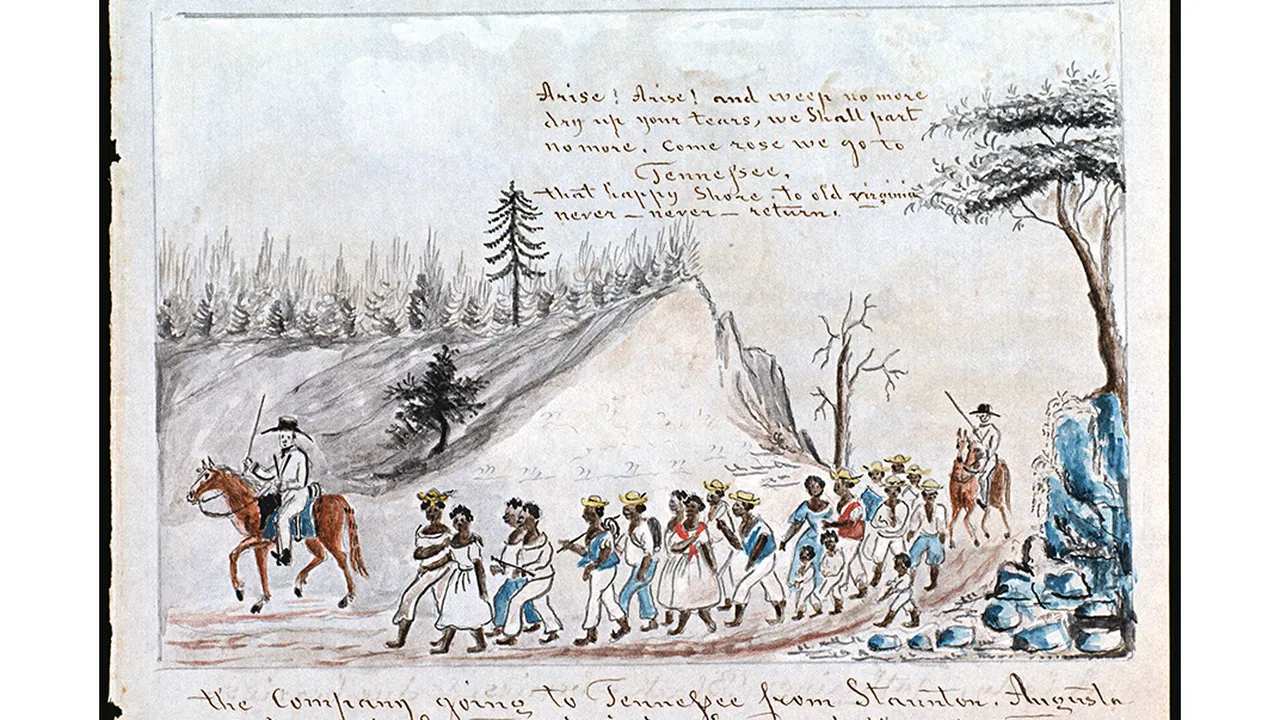 Arise! Arise! and weep no more
dry up your tears, we Shall part
no more. Come rose we go to
Tennessee,
that happy Shore. to old virginia
never – never – return.
the Company going to Tennessee from Staunton. Augusta